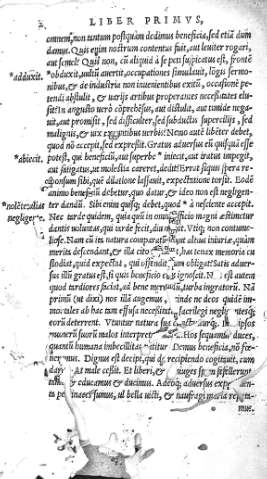 LIBER PRIMVS,
omnem, non tantum postquàm dedimus beneficia, sed etiā dum
damus. Quis enim nostrum contentus fuit, aut leuiter rogari,
aut semel? Quis non, cū aliquid à se peti suspicatus est, frontē
*adduxit. *obduxit, uultū auertit, occupationes simulauit, lōgis sermo-
nibus, & de industria non inuenientibus exitū, occasionē pe-
tendi abstulit, & uarijs artibus properantes necessitates elu-
sit? In angusto uerò cōprehēsus, aut distulit, aut timidè nega-
uit, aut promisit, sed difficulter, sed subductis supercilijs, sed
malignis, & uix exeuntibus uerbis? Nemo autē libēter debet,
quod nō accepit, sed expressit. Gratus aduersus eū quisquā esse
*abiecit. potest, qui beneficiū, aut superbè *iniecit, aut iratus impegit,
aut fatigatus, ut molestia careret, dedit? Errat siquis sperat re-
sponsum sibi, quē dilatione lassauit, expectatione torsit. Eodē
animo beneficiū debetur, quo datur, & ideo non est negligen-
*nolēte, aliàs ter dandū. Sibi enim quisq; debet, quod *à nesciente accepit.
negligēte. Nec tardè quidem, quia quū in omni officio magni æstimetur
dantis voluntas, qui tardè fecit, diu noluit. Vtiq; non contume-
liosè. Nam cū ita natura comparatū altius iniuriæ, quàm
merita descendant, & illa citò has tenax memoria cu
stodiat, quid expectat, qui offendit obligat? Satis aduer-
sus illū gratus est, si quis beneficio ignoscit. Nō est autem
quod tardiores faciat, ad bene merendū, turba ingratorū. Nā
primū (ut dixi) nos illā augemus, inde ne deos quidē im-
mortales ab hac tam effusa necessitate, sacrilegi negligentesq;
eorū deterrent. Vtuntur natura sua ipsos
munerū suorū malos interpretes Hos sequamur duces,
quantū humana imbecillitas patitur Demus beneficia, nō fœ-
neremus. Dignus est decipi, qui de recipiendo cogitauit, cum
daret. At male cessit. Et liberi, & coniuges spem fefellerunt
& educamus & ducimus. Adeoq; aduersus experimen-
ta pertinaces sumus, ut bella uicti, & naufragi maria repeta-
mus.